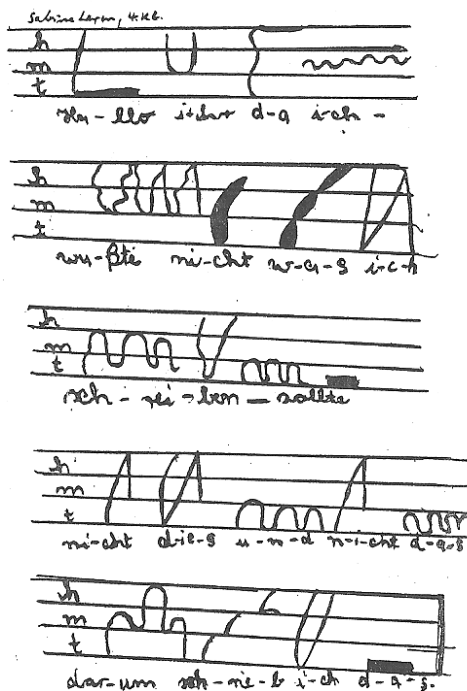 Sabine 4.Kl.
h
m
t
Ha-llo d-a i-ch -
h
m
t
wu-ßte ni-cht w-a-s i-c-h
h
m
t
sch-rei-ben - sollte
h
m
t
ni-cht d-ie-s u-n-d n-i-cht d-a-s
h
m
t
dar-um sch-rie-b i-ch d-a-s.